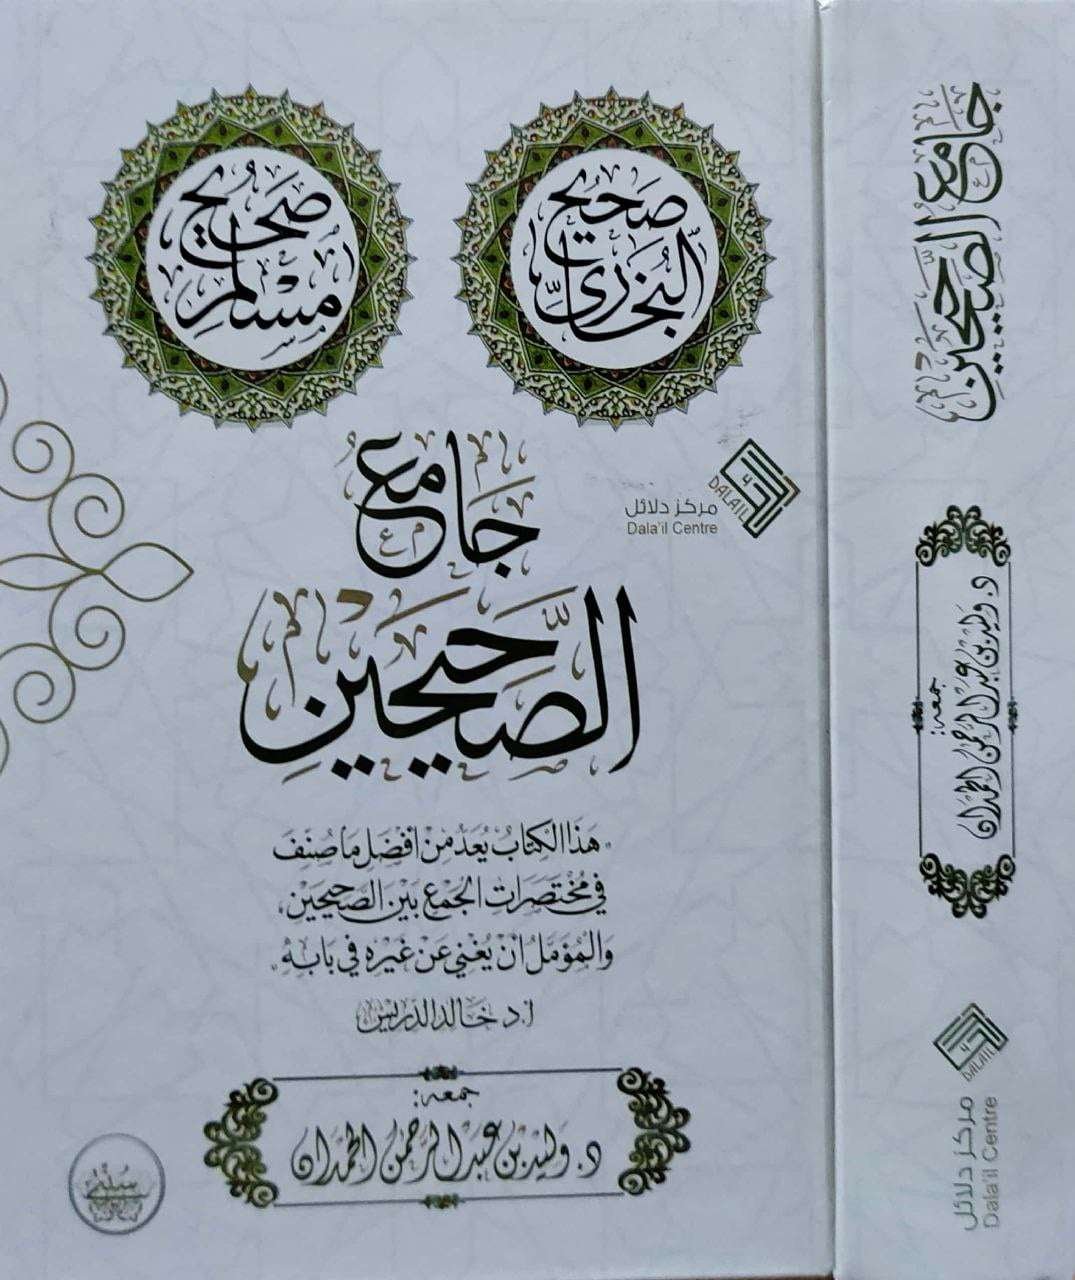 صحيح
البخاري
صحيح
مسلم
جامع
الصحيحين
DALAIL
مركز دلائل
Dala'il Centre
"هذا الكتاب يعد من أفضل ما صنف
في مختصرات الجمع بين الصحيحين،
والمؤمل أن يغني عن غيره في بابه"
أ.د خالد الدريس
جمعه:
د. وليد بن عبد الرحمن الحمدان
جامع الصحيحين
جمعه:
د. وليد بن عبد الرحمن الحمدان
DALAIL
مركز دلائل
Dala'il Centre